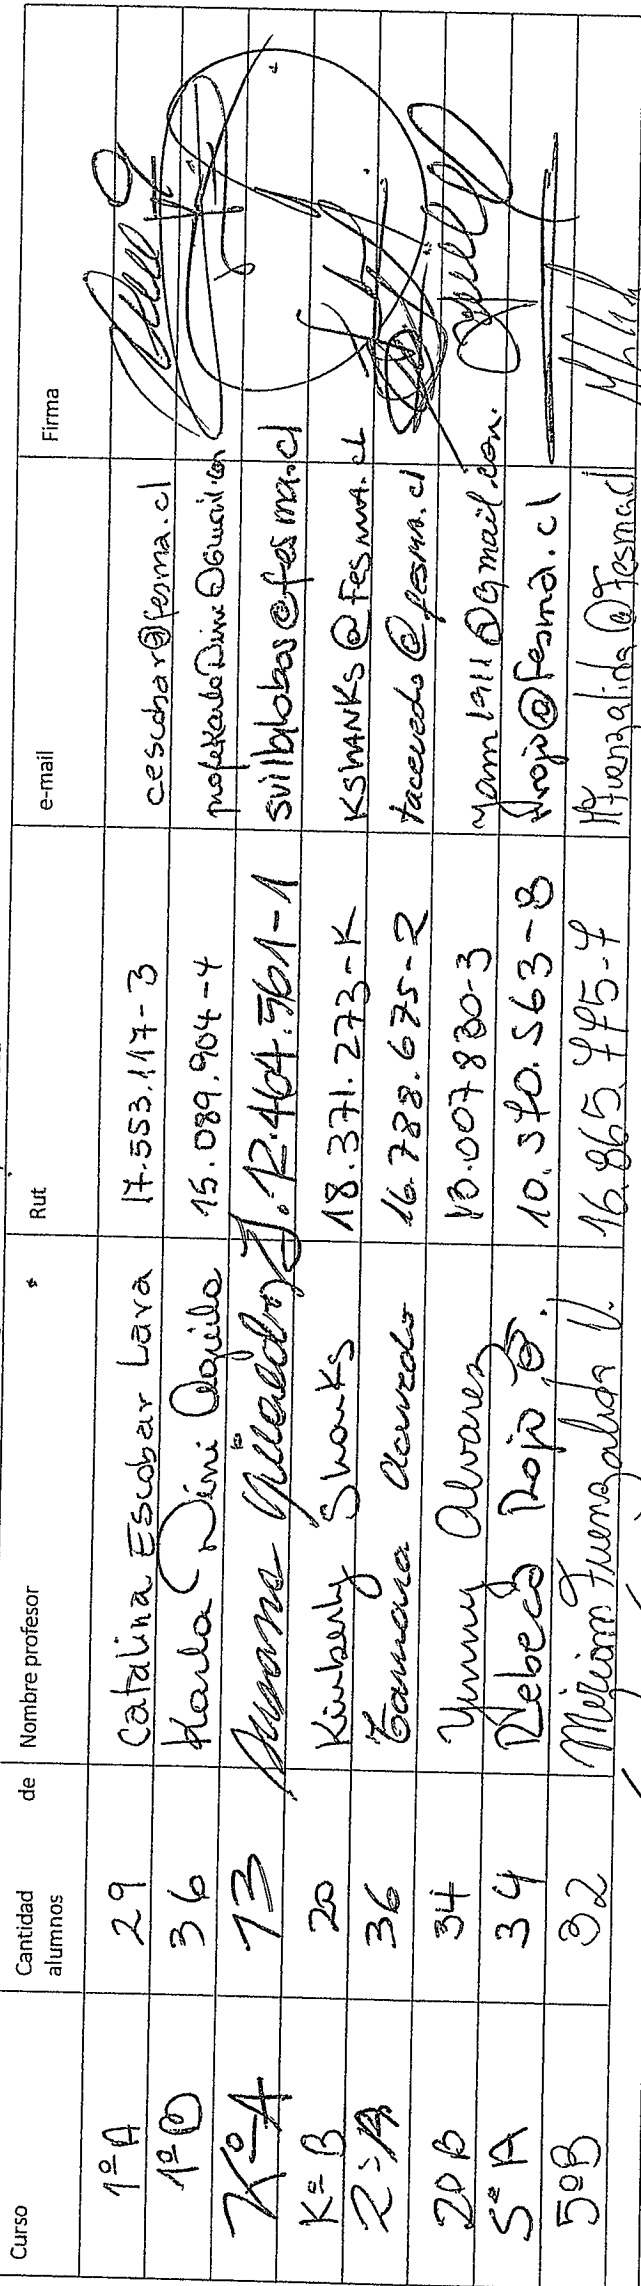 Curso Cantidad de alumnos Nombre profesor Rut e-mail Firma
1º A 29 Catalina Escobar Lara 17.553.117-3 cescobar@fesma.cl
1º B 36 Karla Dini Aguila 15.089.904-4
Kº A 13 Susana J. 12.464.561-1 svillalobos@fesma.cl
Kº B 20 Kimberly Shanks 18.371.273-K KSHANKS@fesma.cl
2º A 36 Tamara Acevedo 16.788.675-2 tacevedo@fesma.cl
2º B 34 Yimmy Alvarez 13.007830-3 yam1911@gmail.com.
5º A 34 Rebeca Rojo 10.370.563-8 rrojo@fesma.cl
5º B 32 Miriam Fuenzalida V. 16.865.775-7 Mfuenzalida@fesma.cl